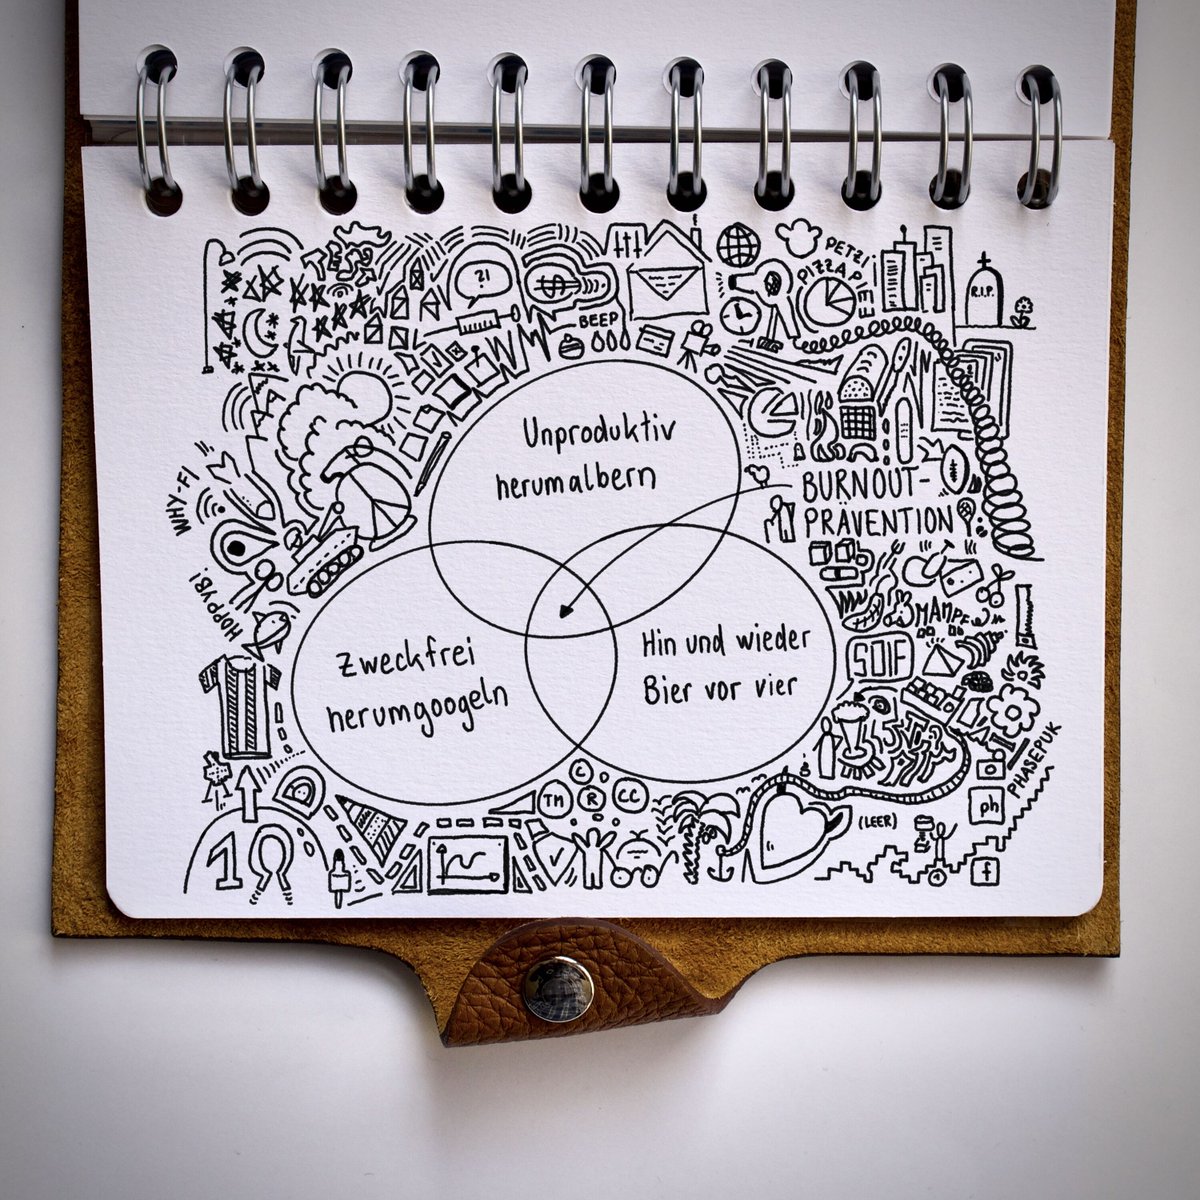 ?!
BEEP
PETZI
PIZZA PIE!
R.I.P.
Unproduktiv
herumalbern
BURNOUT-
PRÄVENTION
WHY-FI
HOPPYB!
MAMPF
SOIF
Zweckfrei
herumgoogeln
Hin und wieder
Bier vor vier
PHASEPUK
ph
f
(LEER)
C
TM
R
CC
10